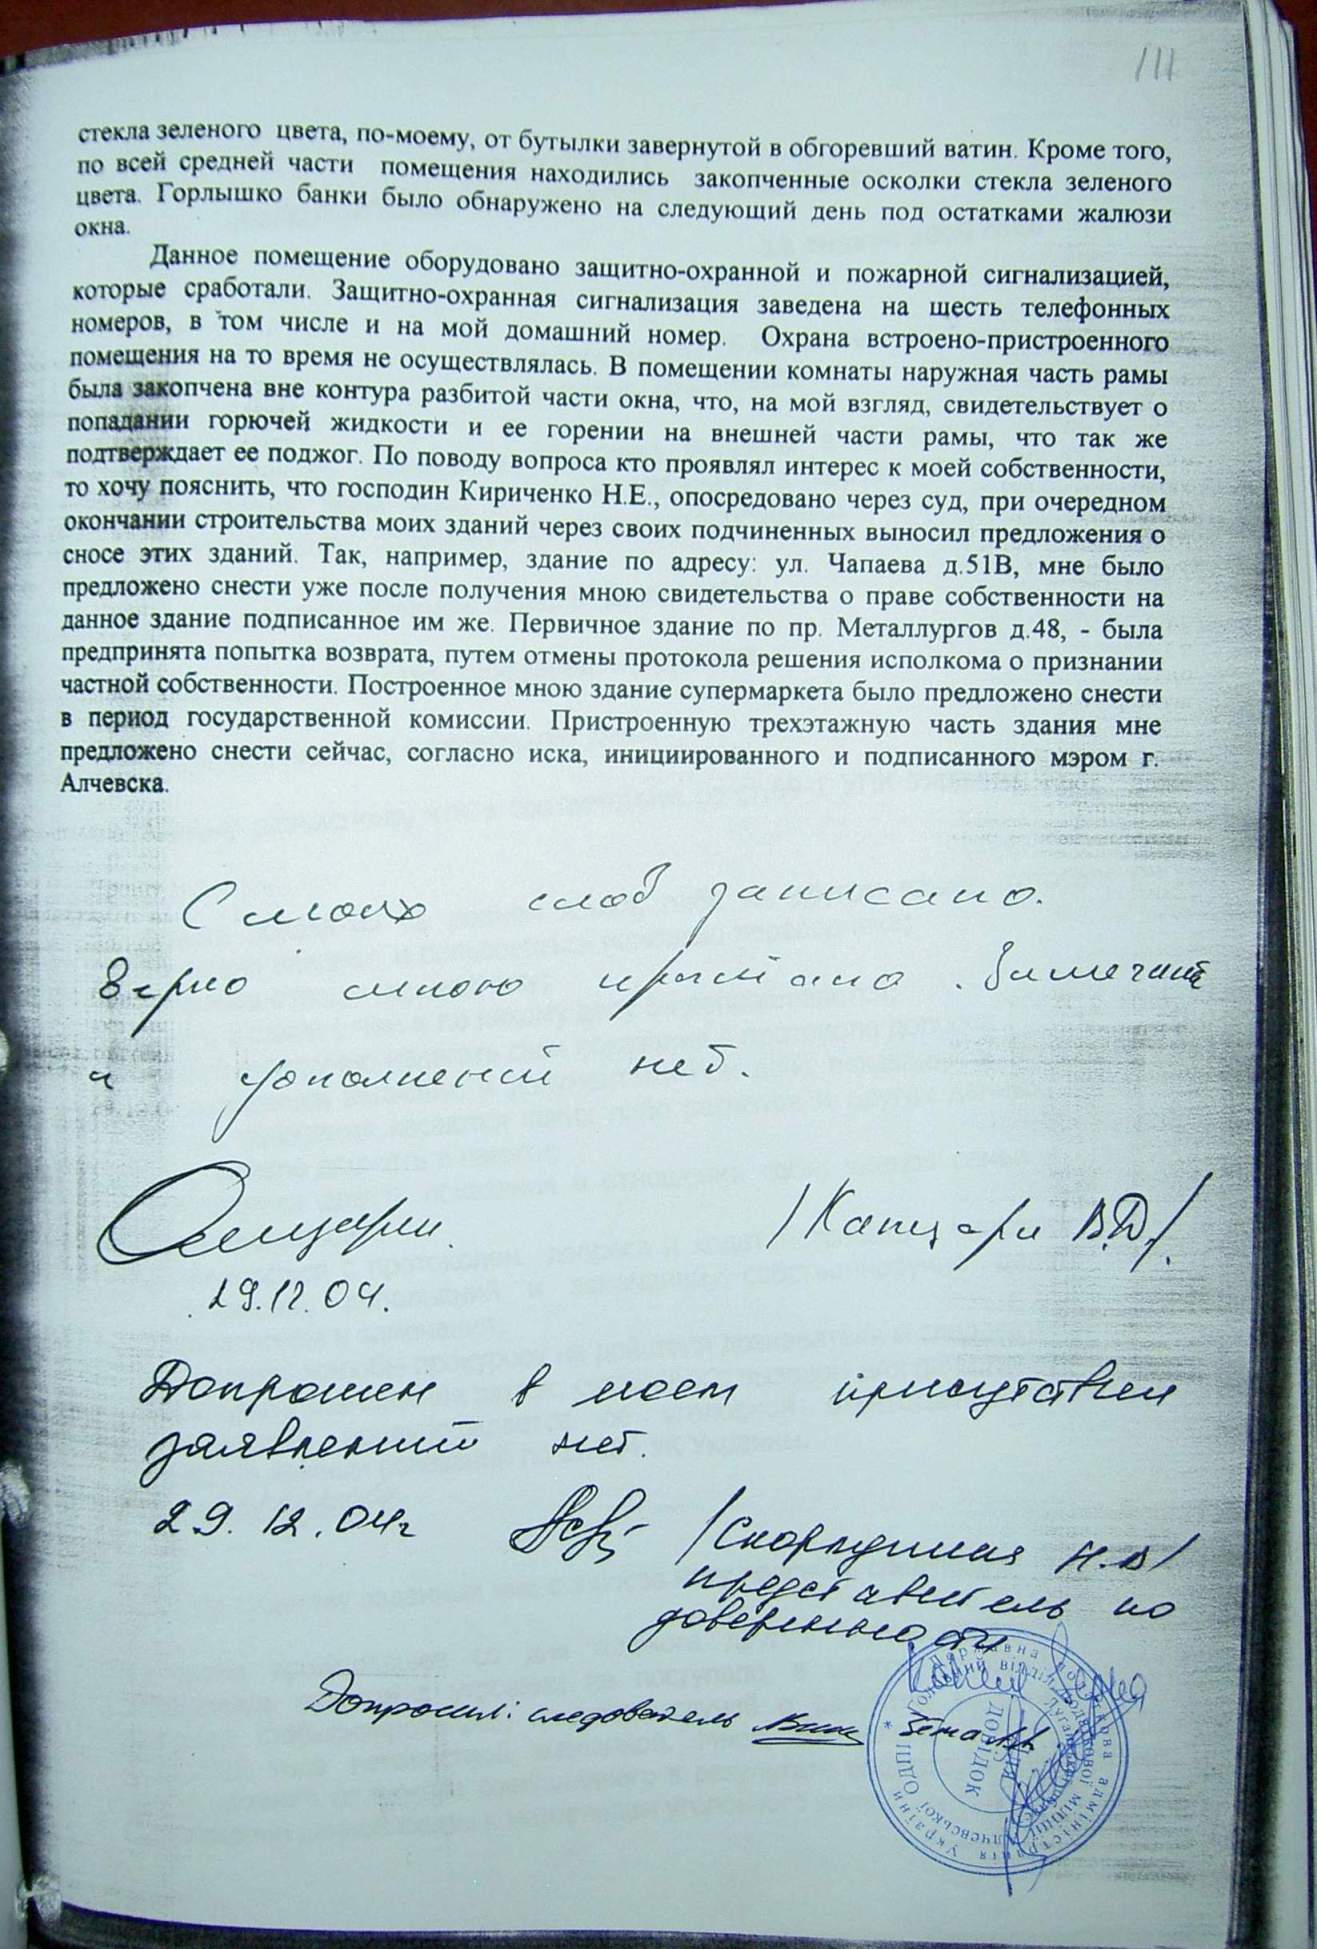 111
стекла зеленого цвета, по-моему, от бутылки завернутой в обгоревший ватин. Кроме того,
по всей средней части помещения находились закопченные осколки стекла зеленого
цвета. Горлышко банки было обнаружено на следующий день под остатками жалюзи
окна.
Данное помещение оборудовано защитно-охранной и пожарной сигнализацией,
которые сработали. Защитно-охранная сигнализация заведена на шесть телефонных
номеров, в том числе и на мой домашний номер. Охрана встроено-пристроенного
помещения на то время не осуществлялась. В помещении комнаты наружная часть рамы
была закопчена вне контура разбитой части окна, что, на мой взгляд, свидетельствует о
попадании горючей жидкости и ее горении на внешней части рамы, что так же
подтверждает ее поджог. По поводу вопроса кто проявлял интерес к моей собственности,
то хочу пояснить, что господин Кириченко Н.Е., опосредовано через суд, при очередном
окончании строительства моих зданий через своих подчиненных выносил предложения о
сносе этих зданий. Так, например, здание по адресу: ул. Чапаева д.51В, мне было
предложено снести уже после получения мною свидетельства о праве собственности на
данное здание подписанное им же. Первичное здание по пр. Металлургов д.48, - была
предпринята попытка возврата, путем отмены протокола решения исполкома о признании
частной собственности. Построенное мною здание супермаркета было предложено снести
в период государственной комиссии. Пристроенную трехэтажную часть здания мне
предложено снести сейчас, согласно иска, инициированного и подписанного мэром г.
Алчевска.
С моих слов записано.
Верно мною прочитано. Замечаний
и дополнений нет.
/Капцари В.Д./
29.12.04.
Допрошен в моем присутствии
заявлений нет.
29.12.04г /Скорпулина Н.В/
представитель по
доверенности
Допросил: следователь
Державна податкова адміністрація України
ДОВІДОК